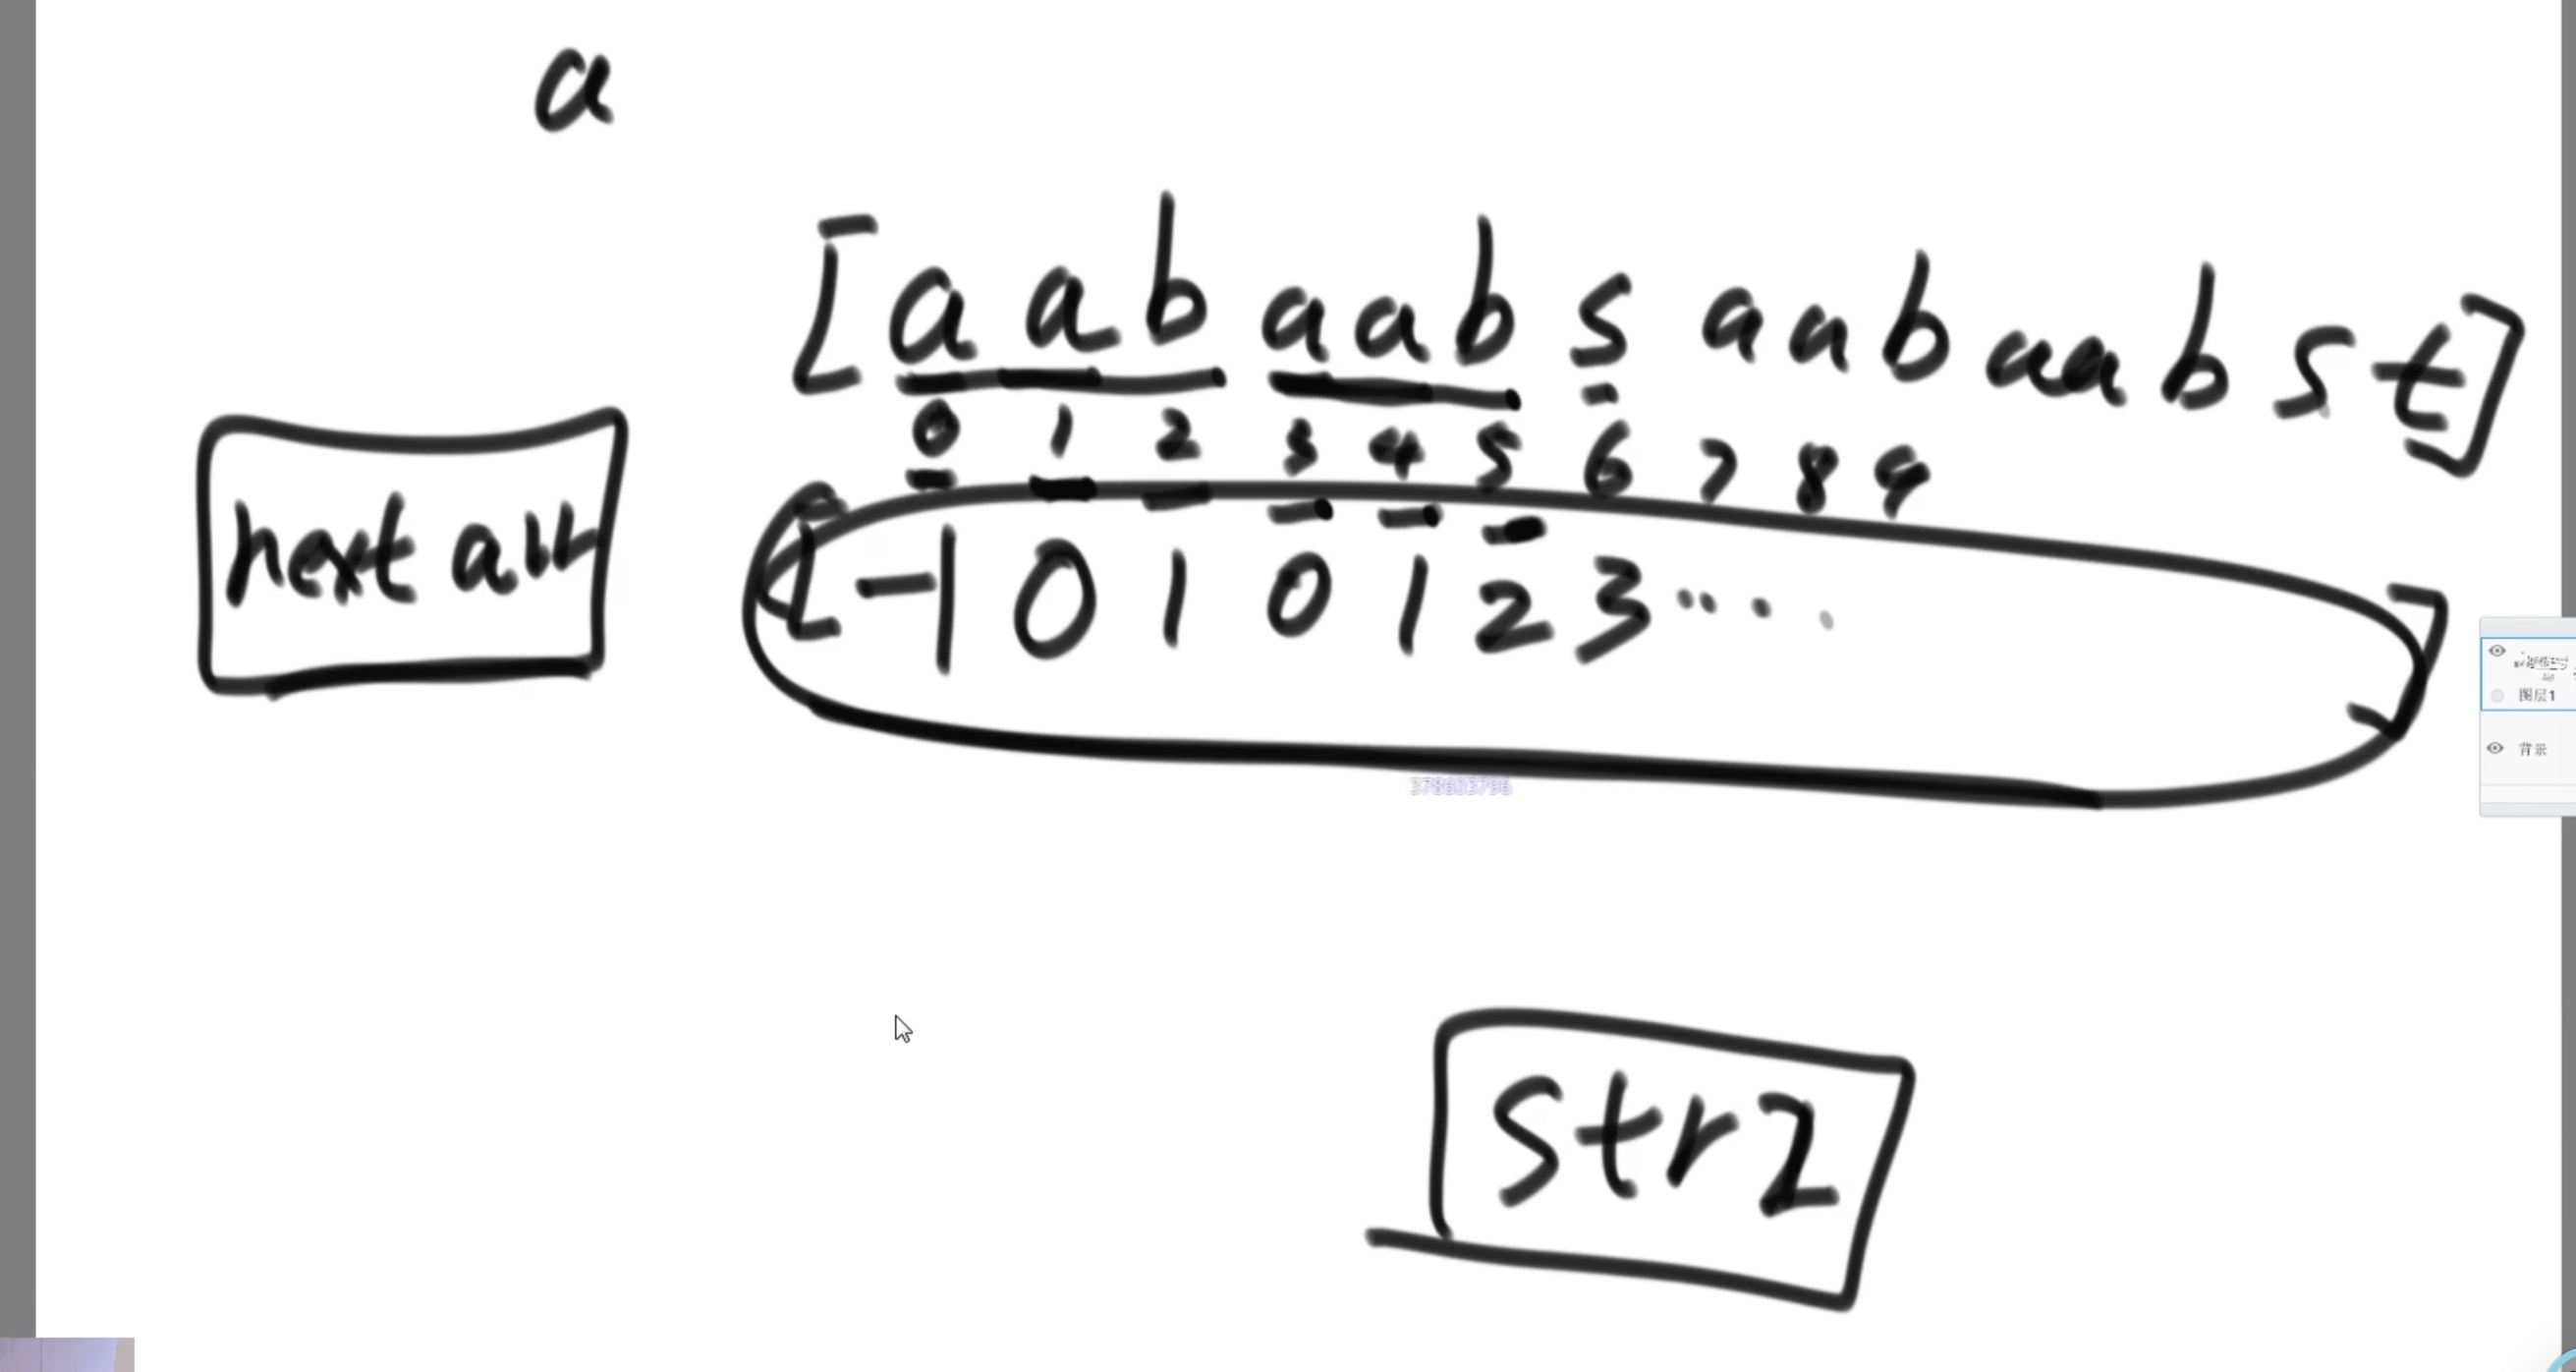 a
[a a b a a b s a a b a a b s t]
0 1 2 3 4 5 6 7 8 9
next arr
[-1 0 1 0 1 2 3 ···· ]
图层1
背景
378603796
str2